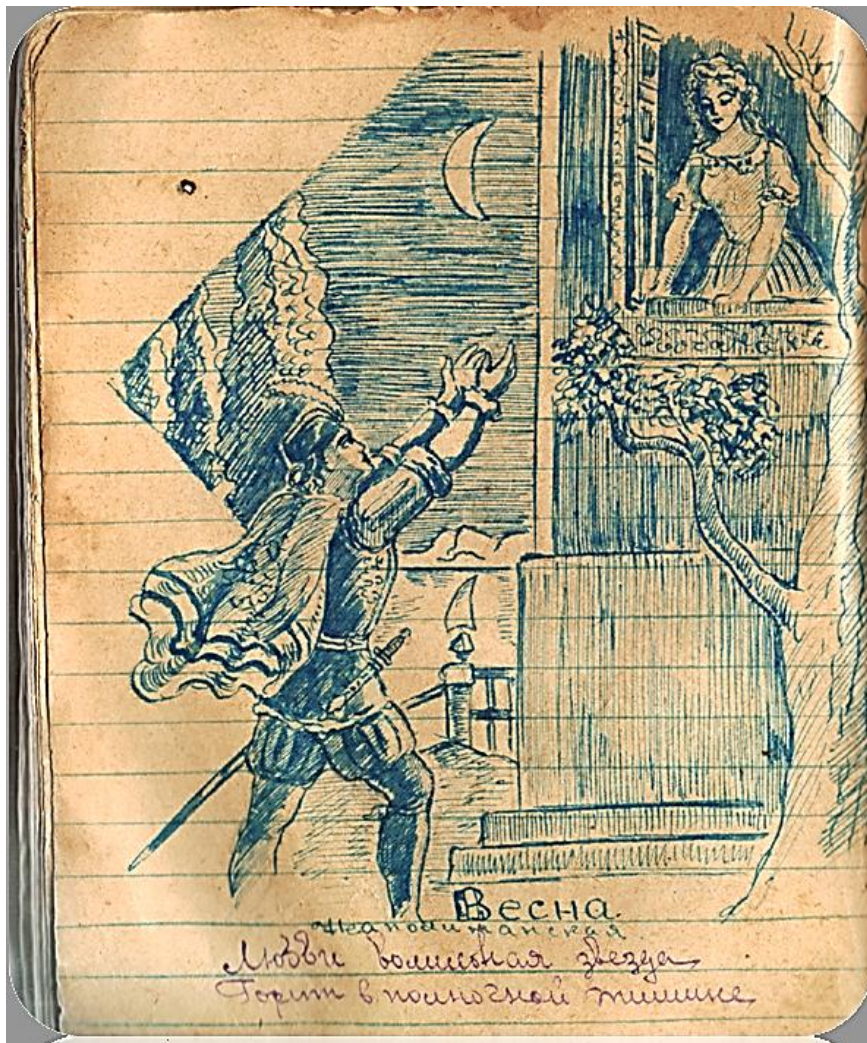 Весна
Неаполитанская
Любви волшебная звезда
Горит в полночной тишине